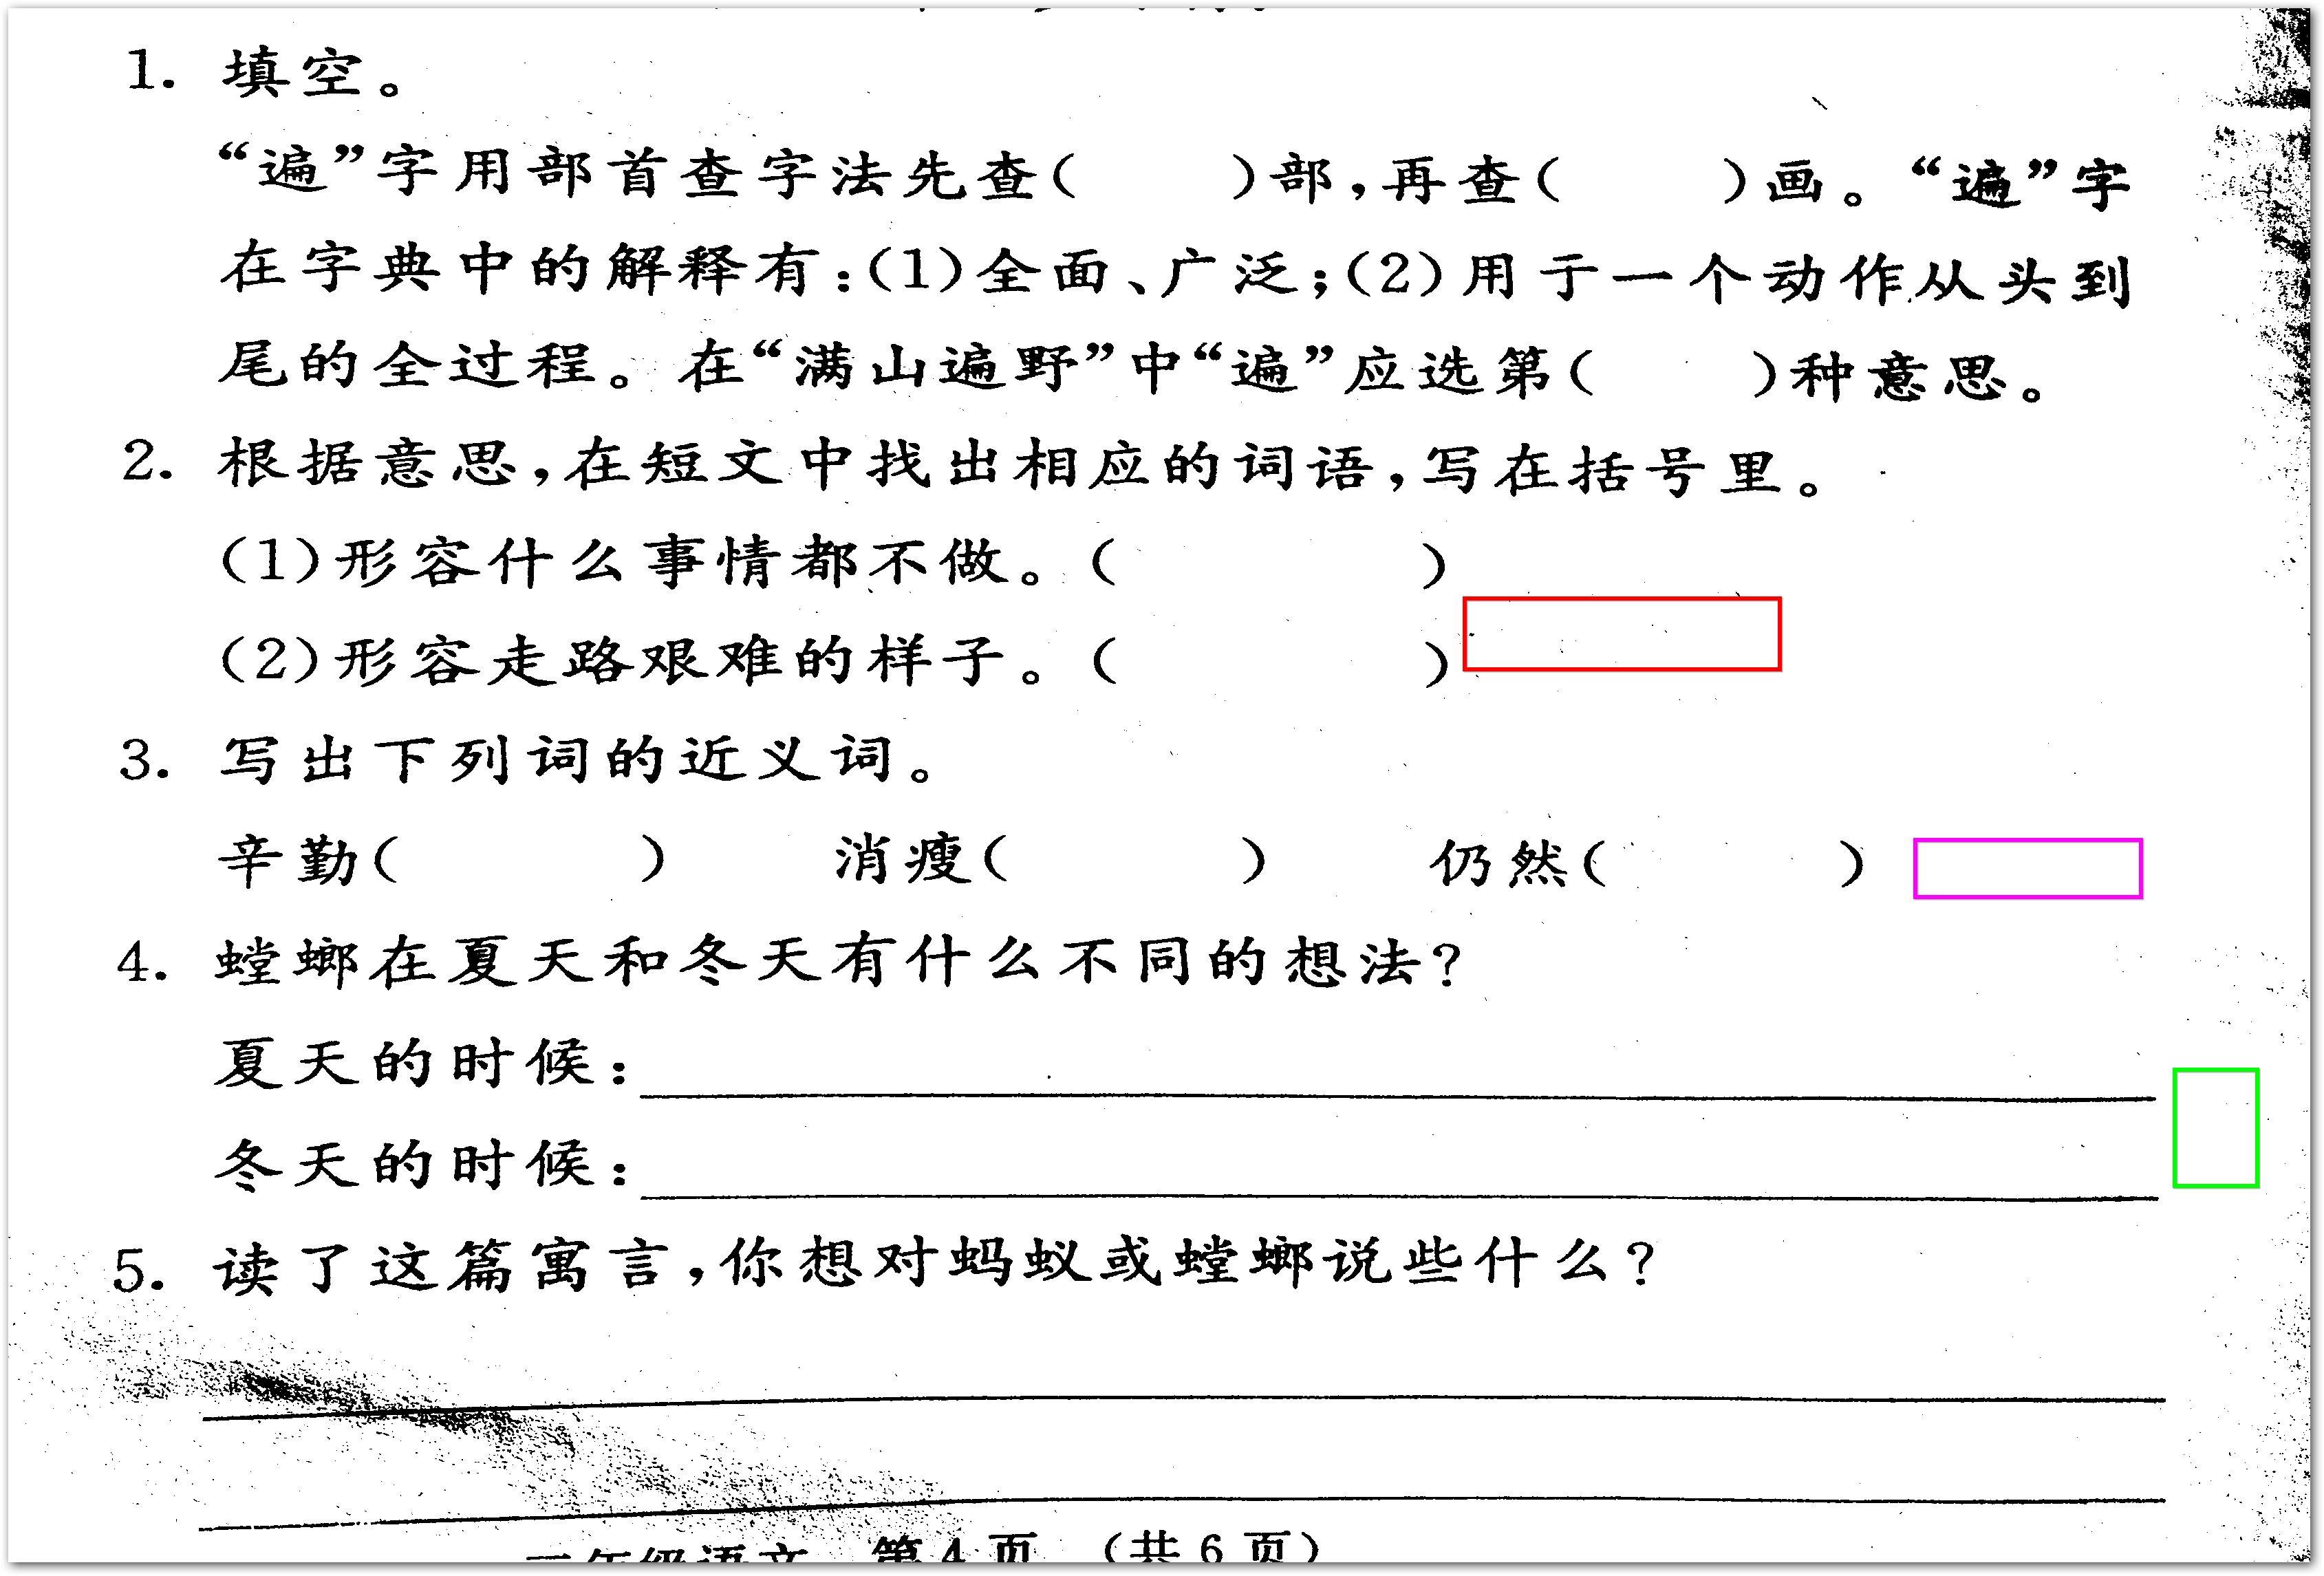 1. 填空。
“遍”字用部首查字法先查(　　)部,再查(　　)画。“遍”字
在字典中的解释有:(1)全面、广泛;(2)用于一个动作从头到
尾的全过程。在“满山遍野”中“遍”应选第(　　)种意思。
2. 根据意思,在短文中找出相应的词语,写在括号里。
(1)形容什么事情都不做。(　　)
(2)形容走路艰难的样子。(　　)
3. 写出下列词的近义词。
辛勤(　　)　消瘦(　　)　仍然(　　)
4. 螳螂在夏天和冬天有什么不同的想法?
夏天的时候:
冬天的时候:
5. 读了这篇寓言,你想对蚂蚁或螳螂说些什么?
年级语文 第4页 (共6页)